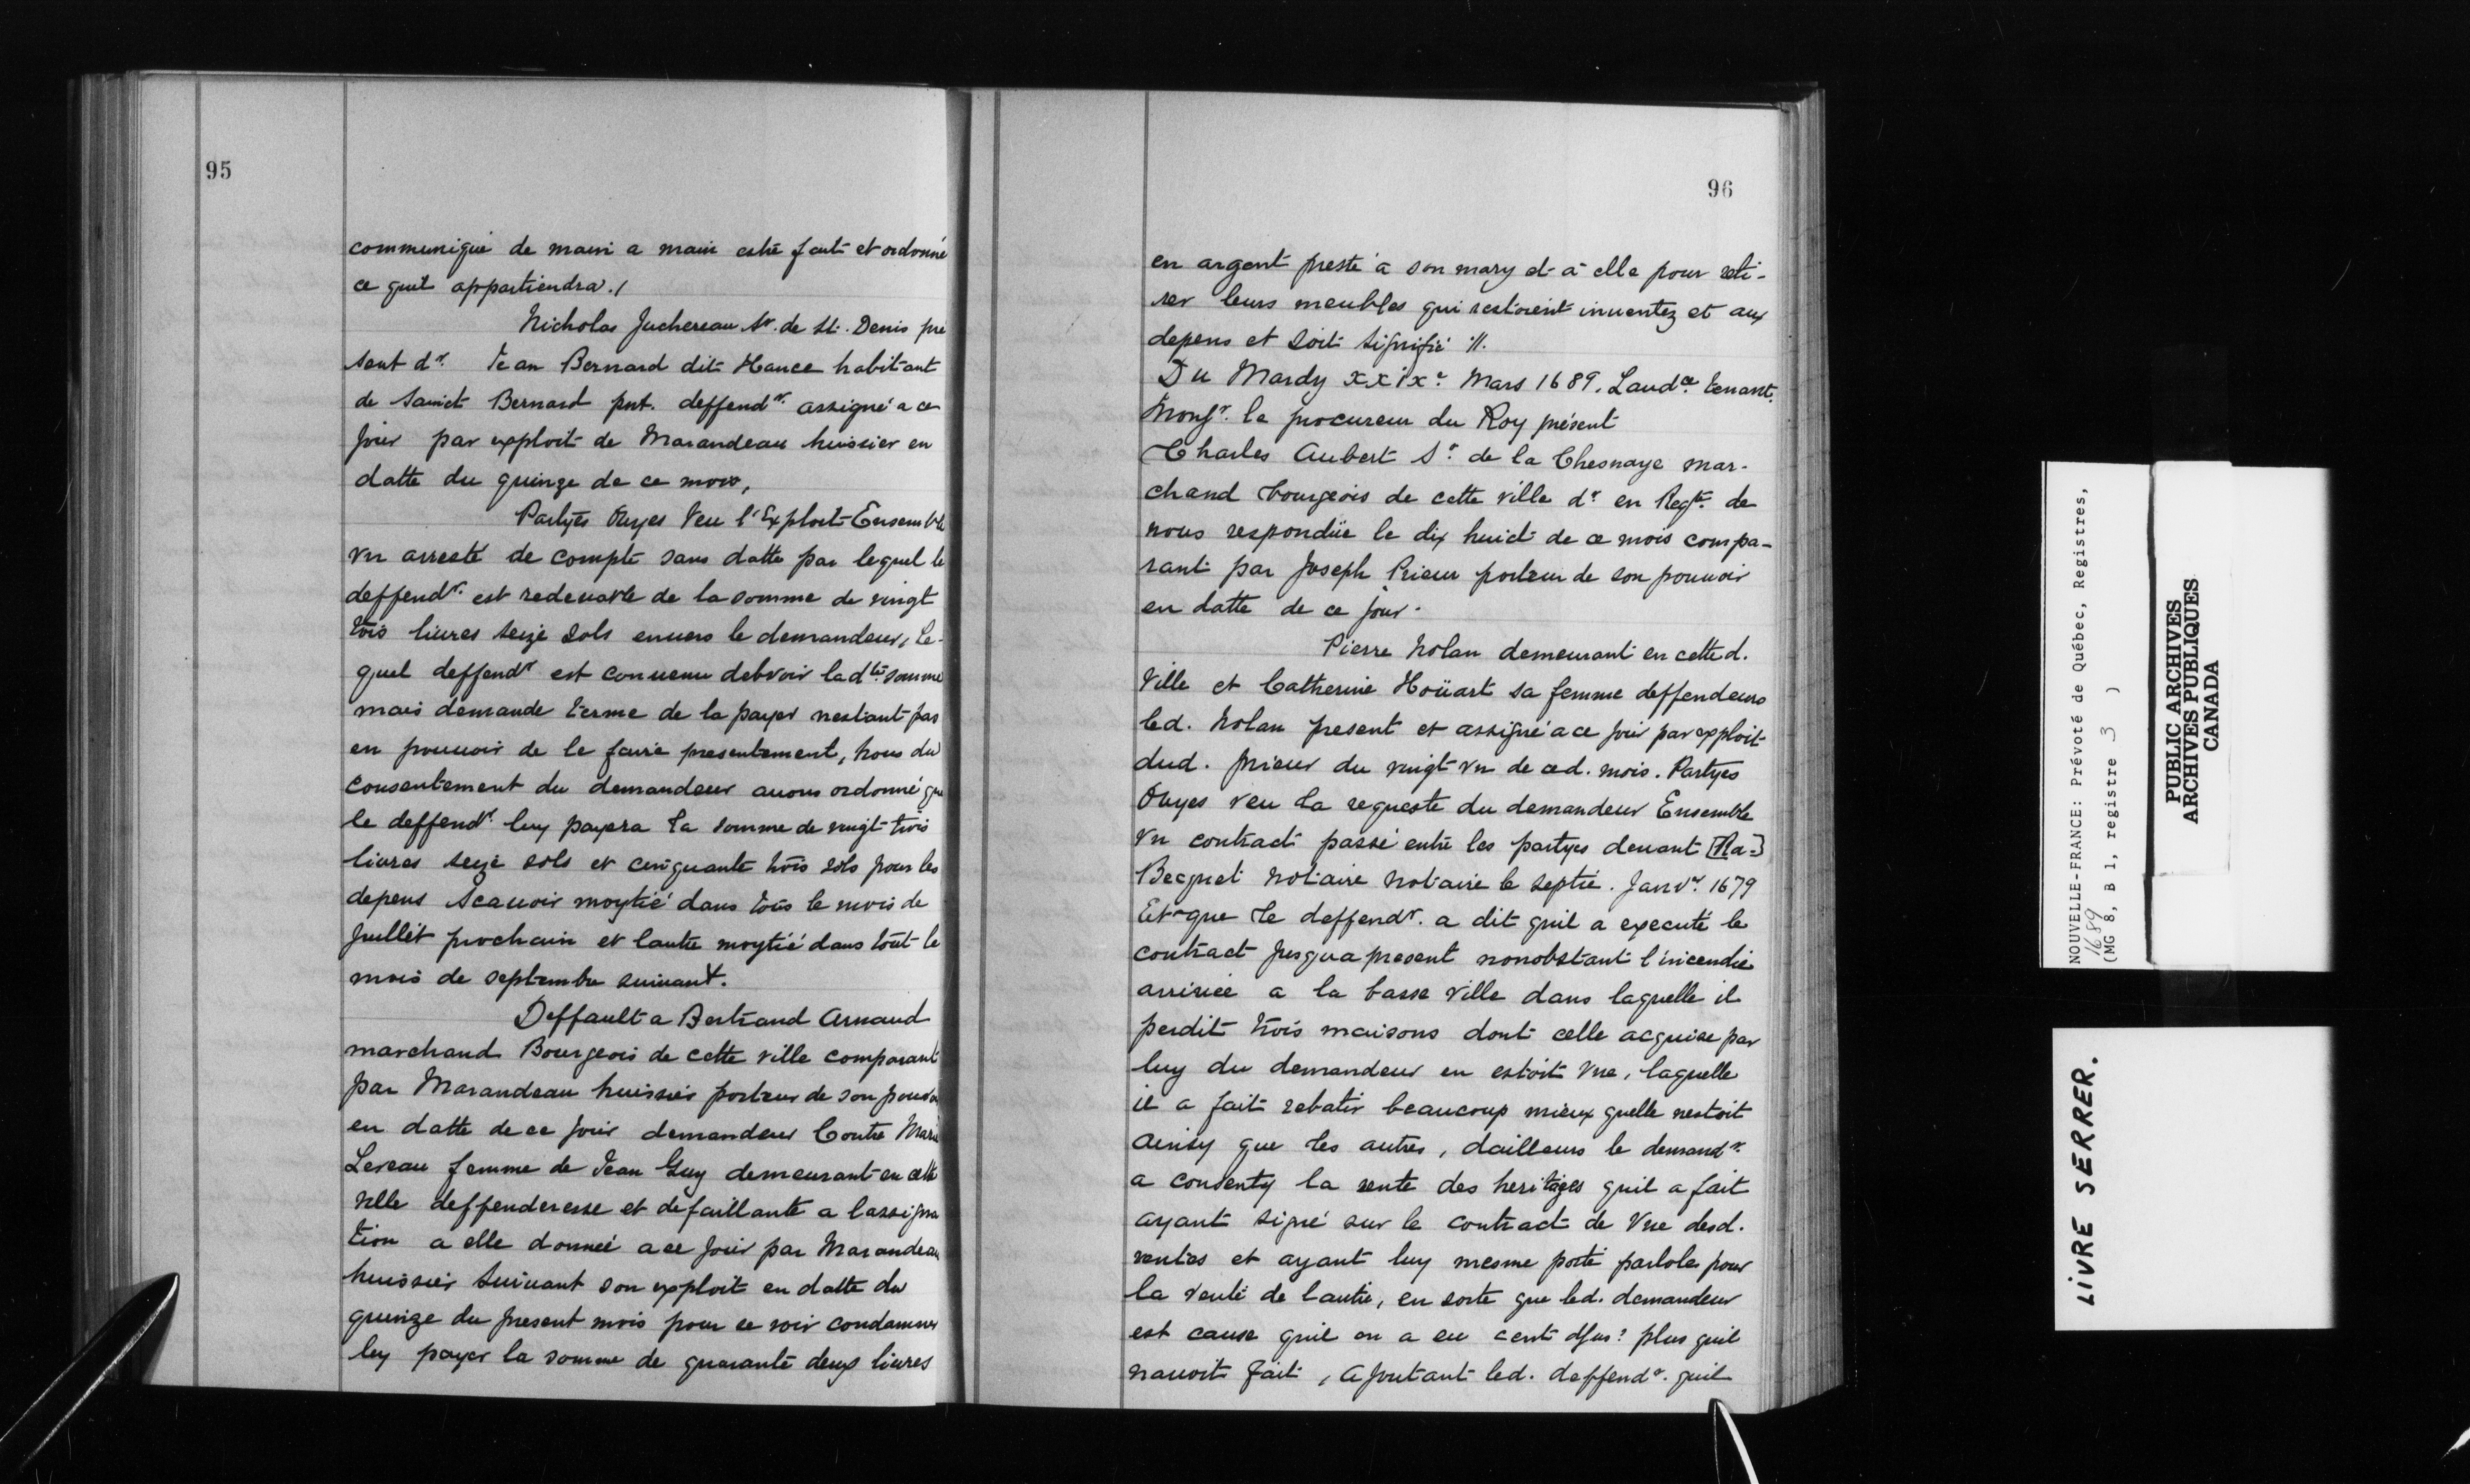 95
communiqué de main a main estre fait et ordonné
ce quil appartiendra ./
Nicholas Juchereau Sr. de St. Denis pre
sent dr. Jean Bernard dit Hance habitant
de Sainct Bernard pnt. deffendr. assigné a ce
jour par exploit de Marandeau huissier en
datte du quinze de ce mois,
Partyes Ouyes Veu l'Exploit Ensemble
vn arresté de compte sans datte par lequel le
deffendr. est redeuable de la somme de vingt
trois liures seize sols enuers le demandeur, Le-
quel deffendr est conuenu debvoir ladte. somme
mais demande terme de la payer nestant pas
en pouuoir de le faire presentement, nous du
consentement du demandeur auons ordonné que
le deffendr. luy payera la somme de vingt trois
liures seize sols et cinquante trois sols pour les
depens Scauoir moytié dans tous le mois de
Juillet prochain et lautre moytié dans tout le
mois de septembre suiuant.
Deffault a Bertrand Arnaud
marchand Bourgeois de cette ville comparant
par Marandeau huissier porteur de son pouvoi
en datte de ce jour demandeur Contre Marie
Lereau femme de Jean Guy demeurant en cette
ville deffenderesse et defaillante a lassigna
tion a elle donneé a ce jour par Marandeau
huissier Suiuant son exploit en datte du
quinze du present mois pour se voir condamner
luy payer la somme de quarante deux liures
96
en argent presté a son mary et a elle pour reti-
rer leurs meubles qui restoient inuentez et aux
depens et soit signifié //.
Du Mardy XXIXe. Mars 1689. Laudce. tenant.
Monsr. le procureur du Roy présent
Charles Aubert Sr. de la Chesnaye mar-
chand bourgeois de cette ville dr. en Reqte. de
nous respondüe le dix huict de ce mois compa-
rant par Joseph Prieur porteur de son pouuoir
en datte de ce jour.
Pierre Nolan demeurant en cette d.
Ville et Catherine Hoüart sa femme deffendeurs
led. Nolan present et assigné a ce jour par exploit
dud. prieur du vingt vn de ced. mois. Partyes
Ouyes veu la requeste du demandeur Ensemble
vn contract passé entre les partyes deuant [Ra=]
Becquet notaire notaire le septie. Janvr. 1679
Et que le deffendr. a dit quil a executé le
contract Jusqua present nonobstant l'incendie
arriuée a la basse ville dans laquelle il
perdit trois maisons dont celle acquise par
luy du demandeur en estoit vne, laquelle
il a fait rebatir beaucoup mieux quelle nestoit
ainsy que les autres, dailleurs le demandr.
a consenty la vente des heritages quil a fait
ayant signé sur le contract de vne desd.
ventes et ayant luy mesme porté parlole pour
la vente de lautre, en sorte que led. demandeur
est cause quil en a eu cent plus quil
nauoit fait, Ajoutant led. deffendr. quil
NOUVELLE-FRANCE: Prévoté de Québec, Registres,
1689
(MG 8, B 1, registre 3 )
PUBLIC ARCHIVES
ARCHIVES PUBLIQUES
CANADA
LIVRE SERRER.